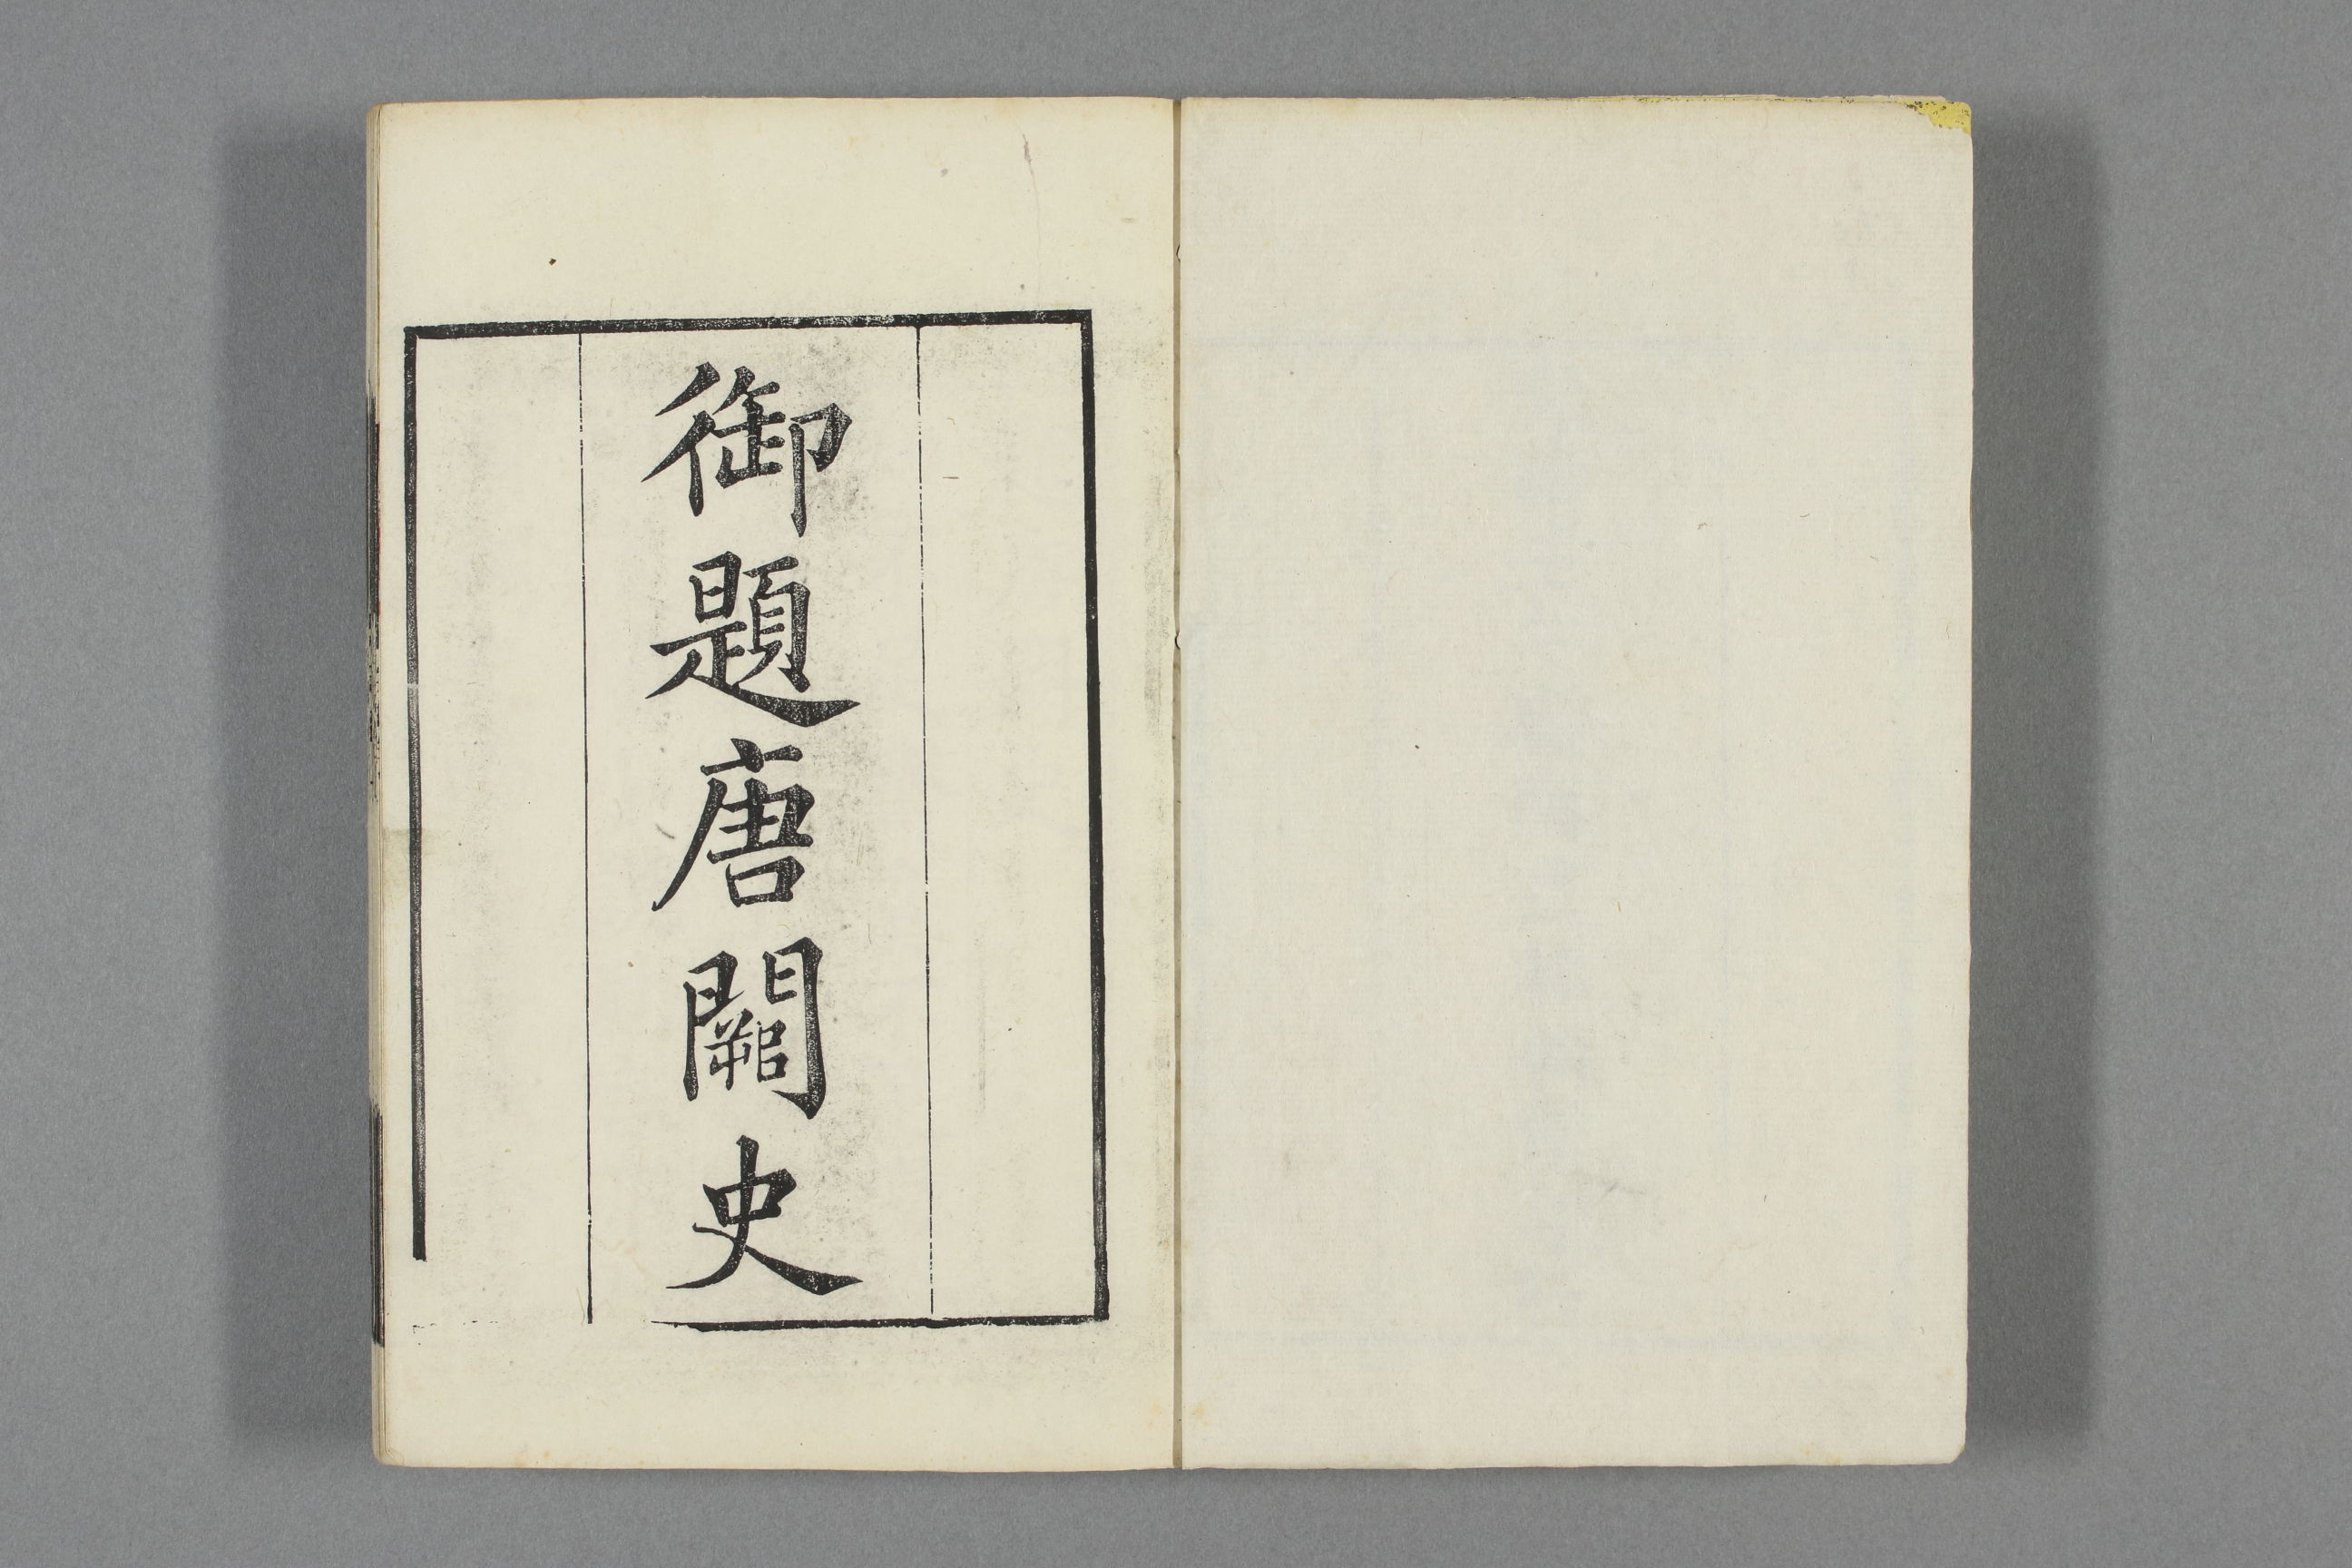 御題唐闕史